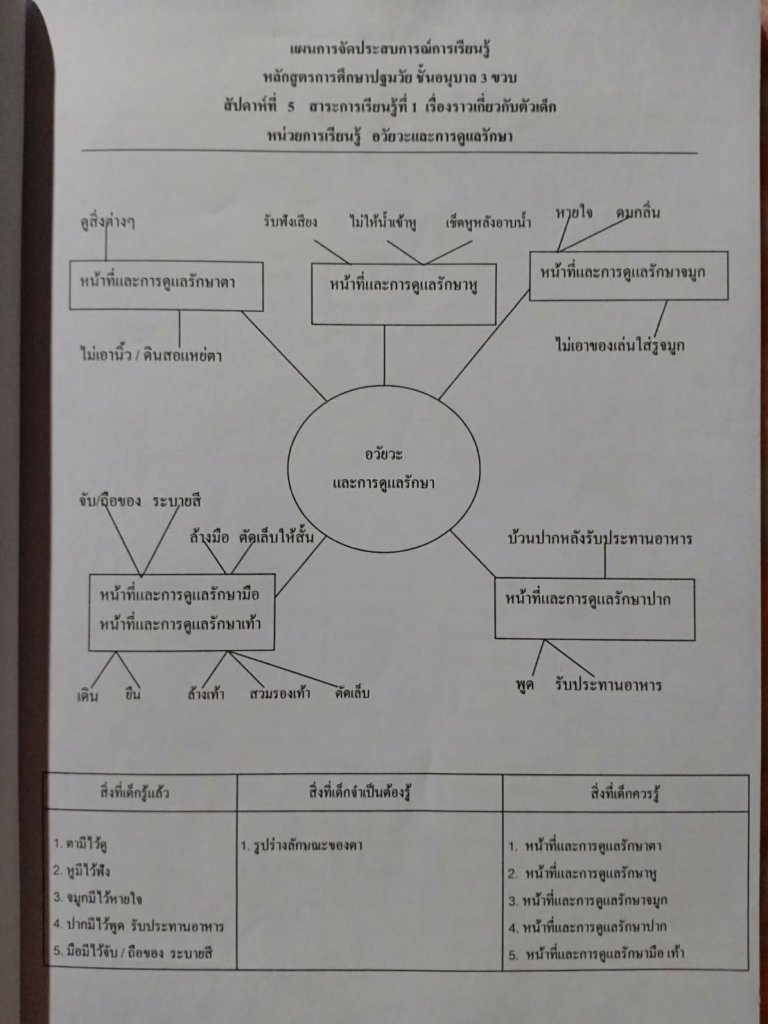 แผนการจัดประสบการณ์การเรียนรู้
หลักสูตรการศึกษาปฐมวัย ชั้นอนุบาล 3 ขวบ
สัปดาห์ที่ 5 สาระการเรียนรู้ที่ 1 เรื่องราวเกี่ยวกับตัวเด็ก
หน่วยการเรียนรู้ อวัยวะและการดูแลรักษา
ดูสิ่งต่างๆ
รับฟังเสียง ไม่ให้น้ำเข้าหู เช็ดหูหลังอาบน้ำ
หายใจ ดมกลิ่น
หน้าที่และการดูแลรักษาตา
หน้าที่และการดูแลรักษาหู
หน้าที่และการดูแลรักษาจมูก
ไม่เอานิ้ว / ดินสอแหย่ตา
ไม่เอาของเล่นใส่รูจมูก
อวัยวะ
และการดูแลรักษา
จับ/ถือของ ระบายสี
ล้างมือ ตัดเล็บให้สั้น
บ้วนปากหลังรับประทานอาหาร
หน้าที่และการดูแลรักษามือ
หน้าที่และการดูแลรักษาเท้า
หน้าที่และการดูแลรักษาปาก
เดิน ยืน ล้างเท้า สวมรองเท้า ตัดเล็บ
พูด รับประทานอาหาร
สิ่งที่เด็กรู้แล้ว สิ่งที่เด็กจำเป็นต้องรู้ สิ่งที่เด็กควรรู้
1. ตามีไว้ดู
2. หูมีไว้ฟัง
3. จมูกมีไว้หายใจ
4. ปากมีไว้พูด รับประทานอาหาร
5. มือมีไว้จับ / ถือของ ระบายสี
1. รูปร่างลักษณะของตา
1. หน้าที่และการดูแลรักษาตา
2. หน้าที่และการดูแลรักษาหู
3. หน้าที่และการดูแลรักษาจมูก
4. หน้าที่และการดูแลรักษาปาก
5. หน้าที่และการดูแลรักษามือ เท้า